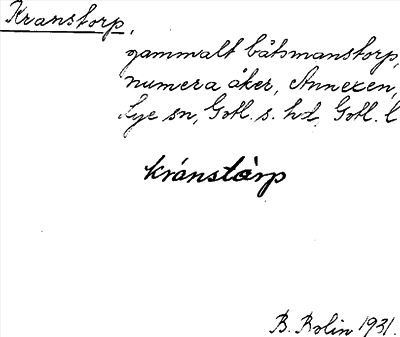 Kranstorp,
gammalt båtsmanstorp,
numera åker, Annexen,
Lye sn, Gotl. s. hd, Gotl. l
kránstàrp
B. Rolin 1931.